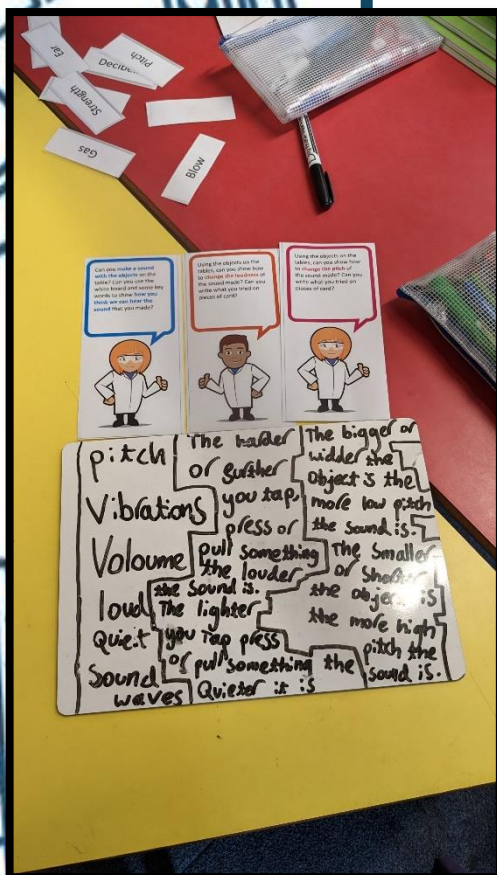 Ear
Pitch
Decibel
Strength
Gas
Blow
Can you make a sound
with the objects on the
table? Can you use the
white board and some key
words to show how you
think we can hear the
sound that you made?
Using the objects on the
tables, can you show how
to change the loudness of
the sound made? Can you
write what you tried on
pieces of card?
Using the objects on the
tables, can you show how
to change the pitch of
the sound made? Can you
write what you tried on
pieces of card?
pitch
Vibrations
Voloume
loud
Quiet
Sound
waves
The harder
or further
you tap,
press or
pull something
the louder
the sound is.
The lighter
you Tap press
or pull something the
Quieter it is
The bigger or
widder the
object is the
more low pitch
the sound is.
The Smaller
or Shorter
the object is
the more high
pitch the
sound is.